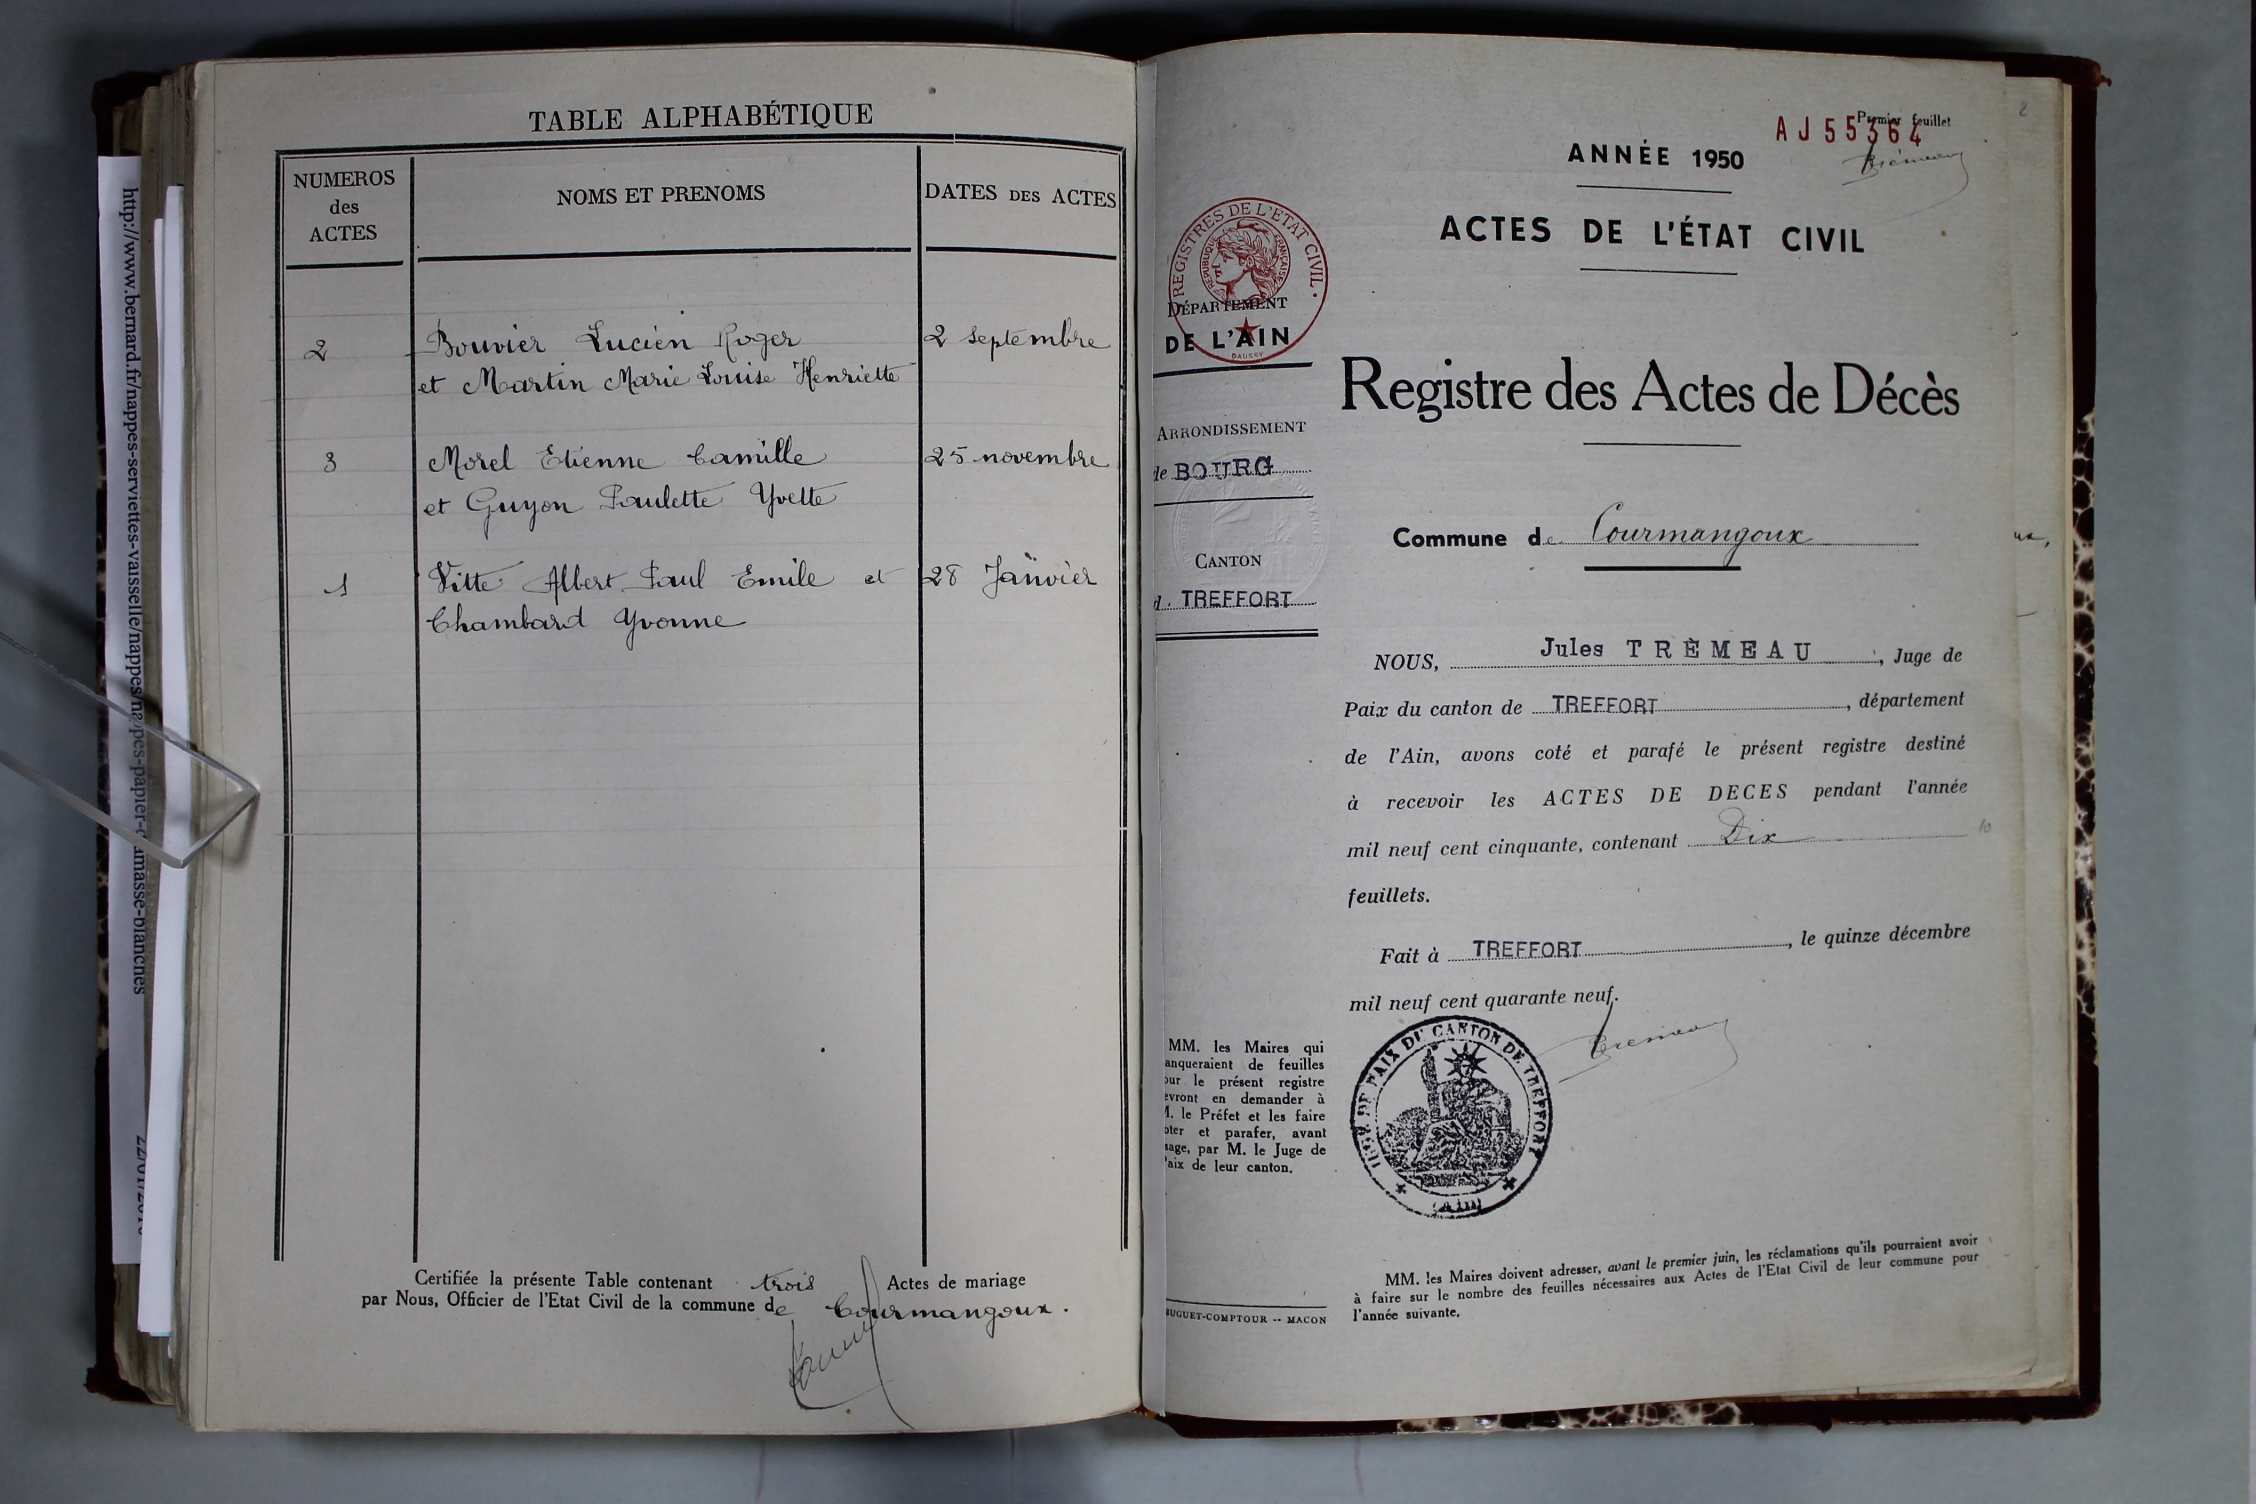 TABLE ALPHABÉTIQUE
NUMEROS
des
ACTES
NOMS ET PRENOMS
DATES DES ACTES
2 Bouvier Lucien Roger 2 septembre
et Martin Marie Louise Henriette
3 Morel Etienne Camille 25 novembre
et Guyon Paulette Yvette
1 Vitte Albert Paul Emile et 28 Janvier
Chambard Yvonne
Certifiée la présente Table contenant trois Actes de mariage
par Nous, Officier de l'Etat Civil de la commune de Courmangoux.
http://www.bernard.fr/nappes-serviettes-vaisselle/nappes/nappes-papier-damasse-blanches
2
Premier feuillet
AJ55364
ANNÉE 1950
Trémeau
ACTES DE L'ÉTAT CIVIL
REGISTRES DE L'ETAT CIVIL
REPUBLIQUE FRANÇAISE
DAUSSY
DÉPARTEMENT
DE L'AIN
Registre des Actes de Décès
ARRONDISSEMENT
de BOURG
Commune de Courmangoux
CANTON
d. TREFFORT
NOUS, Jules TRÈMEAU, Juge de
Paix du canton de TREFFORT, département
de l'Ain, avons coté et parafé le présent registre destiné
à recevoir les ACTES DE DECES pendant l'année
mil neuf cent cinquante, contenant Dix 10
feuillets.
Fait à TREFFORT, le quinze décembre
mil neuf cent quarante neuf.
Trémeau
DE PAIX DU CANTON DE TREFFORT
(AIN)
MM. les Maires qui
anqueraient de feuilles
our le présent registre
evront en demander à
M. le Préfet et les faire
oter et parafer, avant
sage, par M. le Juge de
Paix de leur canton.
BUGUET-COMPTOUR -- MACON
MM. les Maires doivent adresser, avant le premier juin, les réclamations qu'ils pourraient avoir
à faire sur le nombre des feuilles nécessaires aux Actes de l'Etat Civil de leur commune pour
l'année suivante.